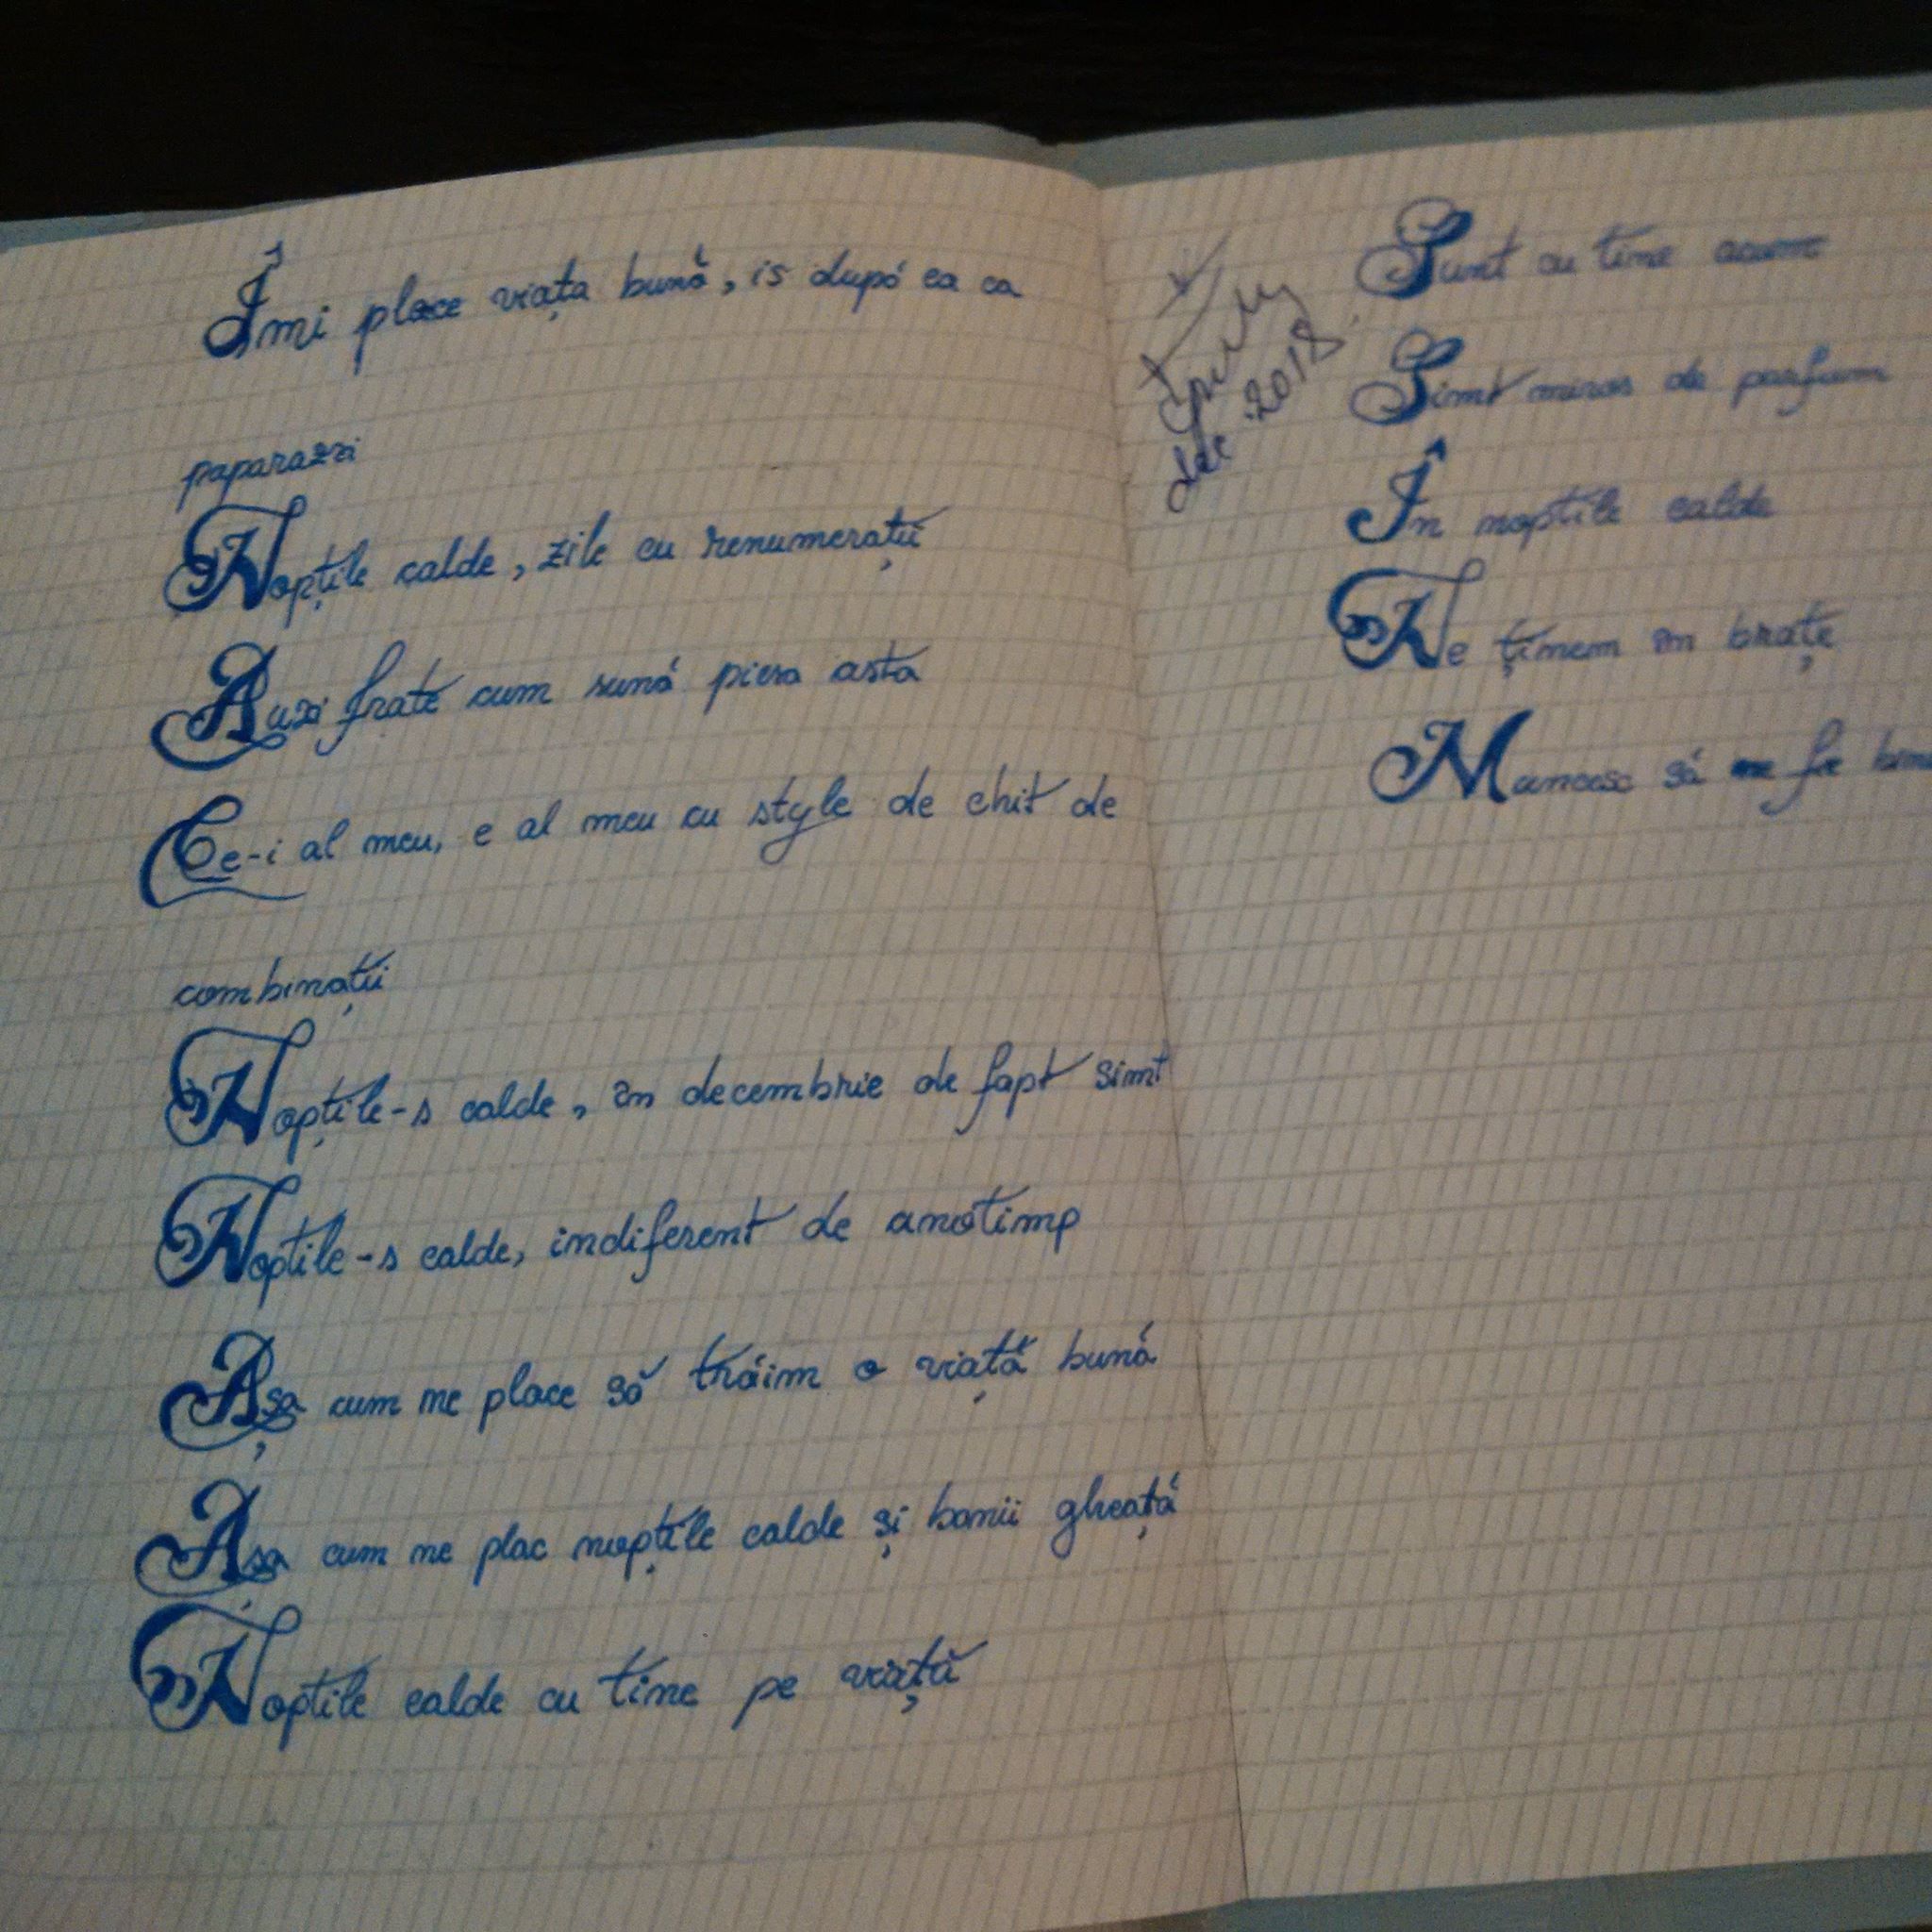 Îmi place viața bună, is după ea ca
paparazzi
Nopțile calde, zile cu renumerații
Auzi frate cum sună piesa asta
Ce-i al meu, e al meu cu style de chit de
combinații
Nopțile-s calde, în decembrie de fapt simt
Noptile-s calde, indiferent de anotimp
Așa cum ne place să trăim o viață bună
Așa cum ne plac nopțile calde și banii gheață
Noptile calde cu tine pe viață
dec 2018
Sunt cu tine acum
Simt miros de parfum
În noptile calde
Ne ținem în brațe
Muncesc să ne fie